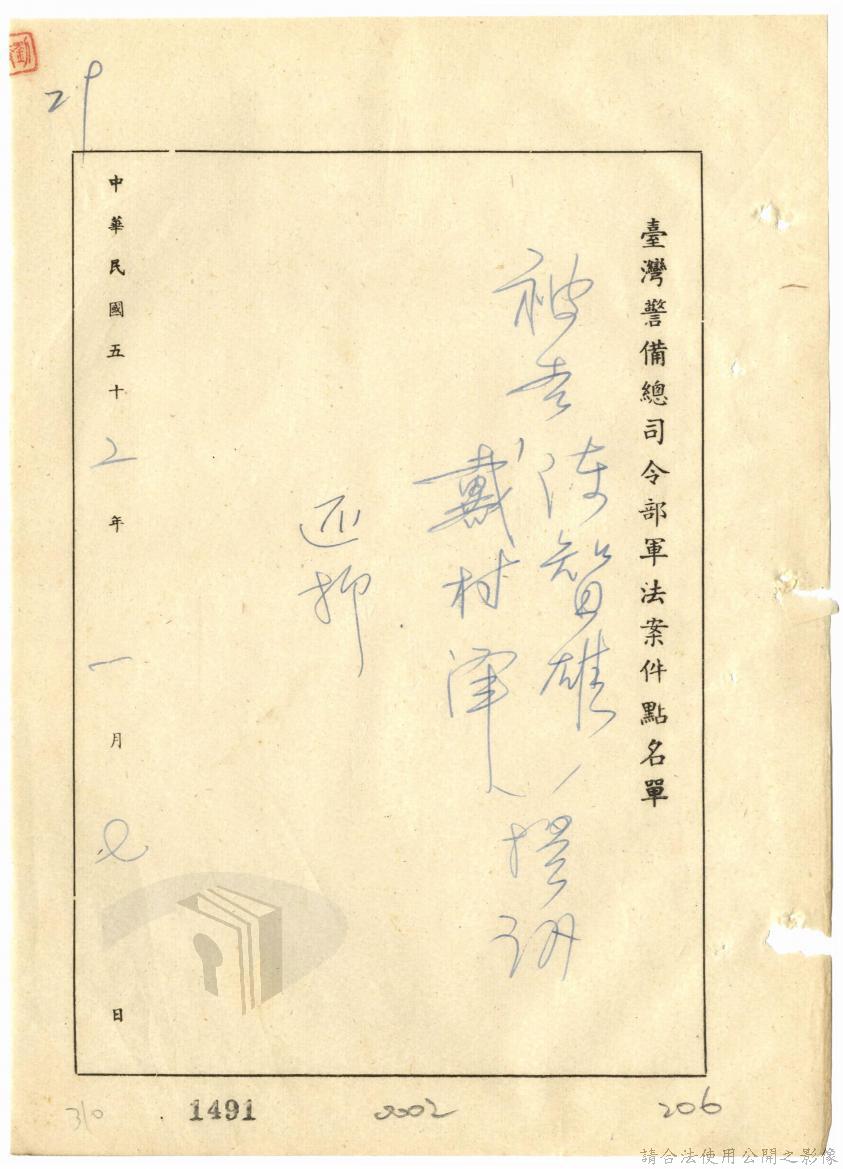 臺灣警備總司令部軍法案件點名單
被告
陳智雄
戴村澤
提訊
還押
中華民國五十二年一月七日
310
1491
0002
206
請合法使用公開之影像